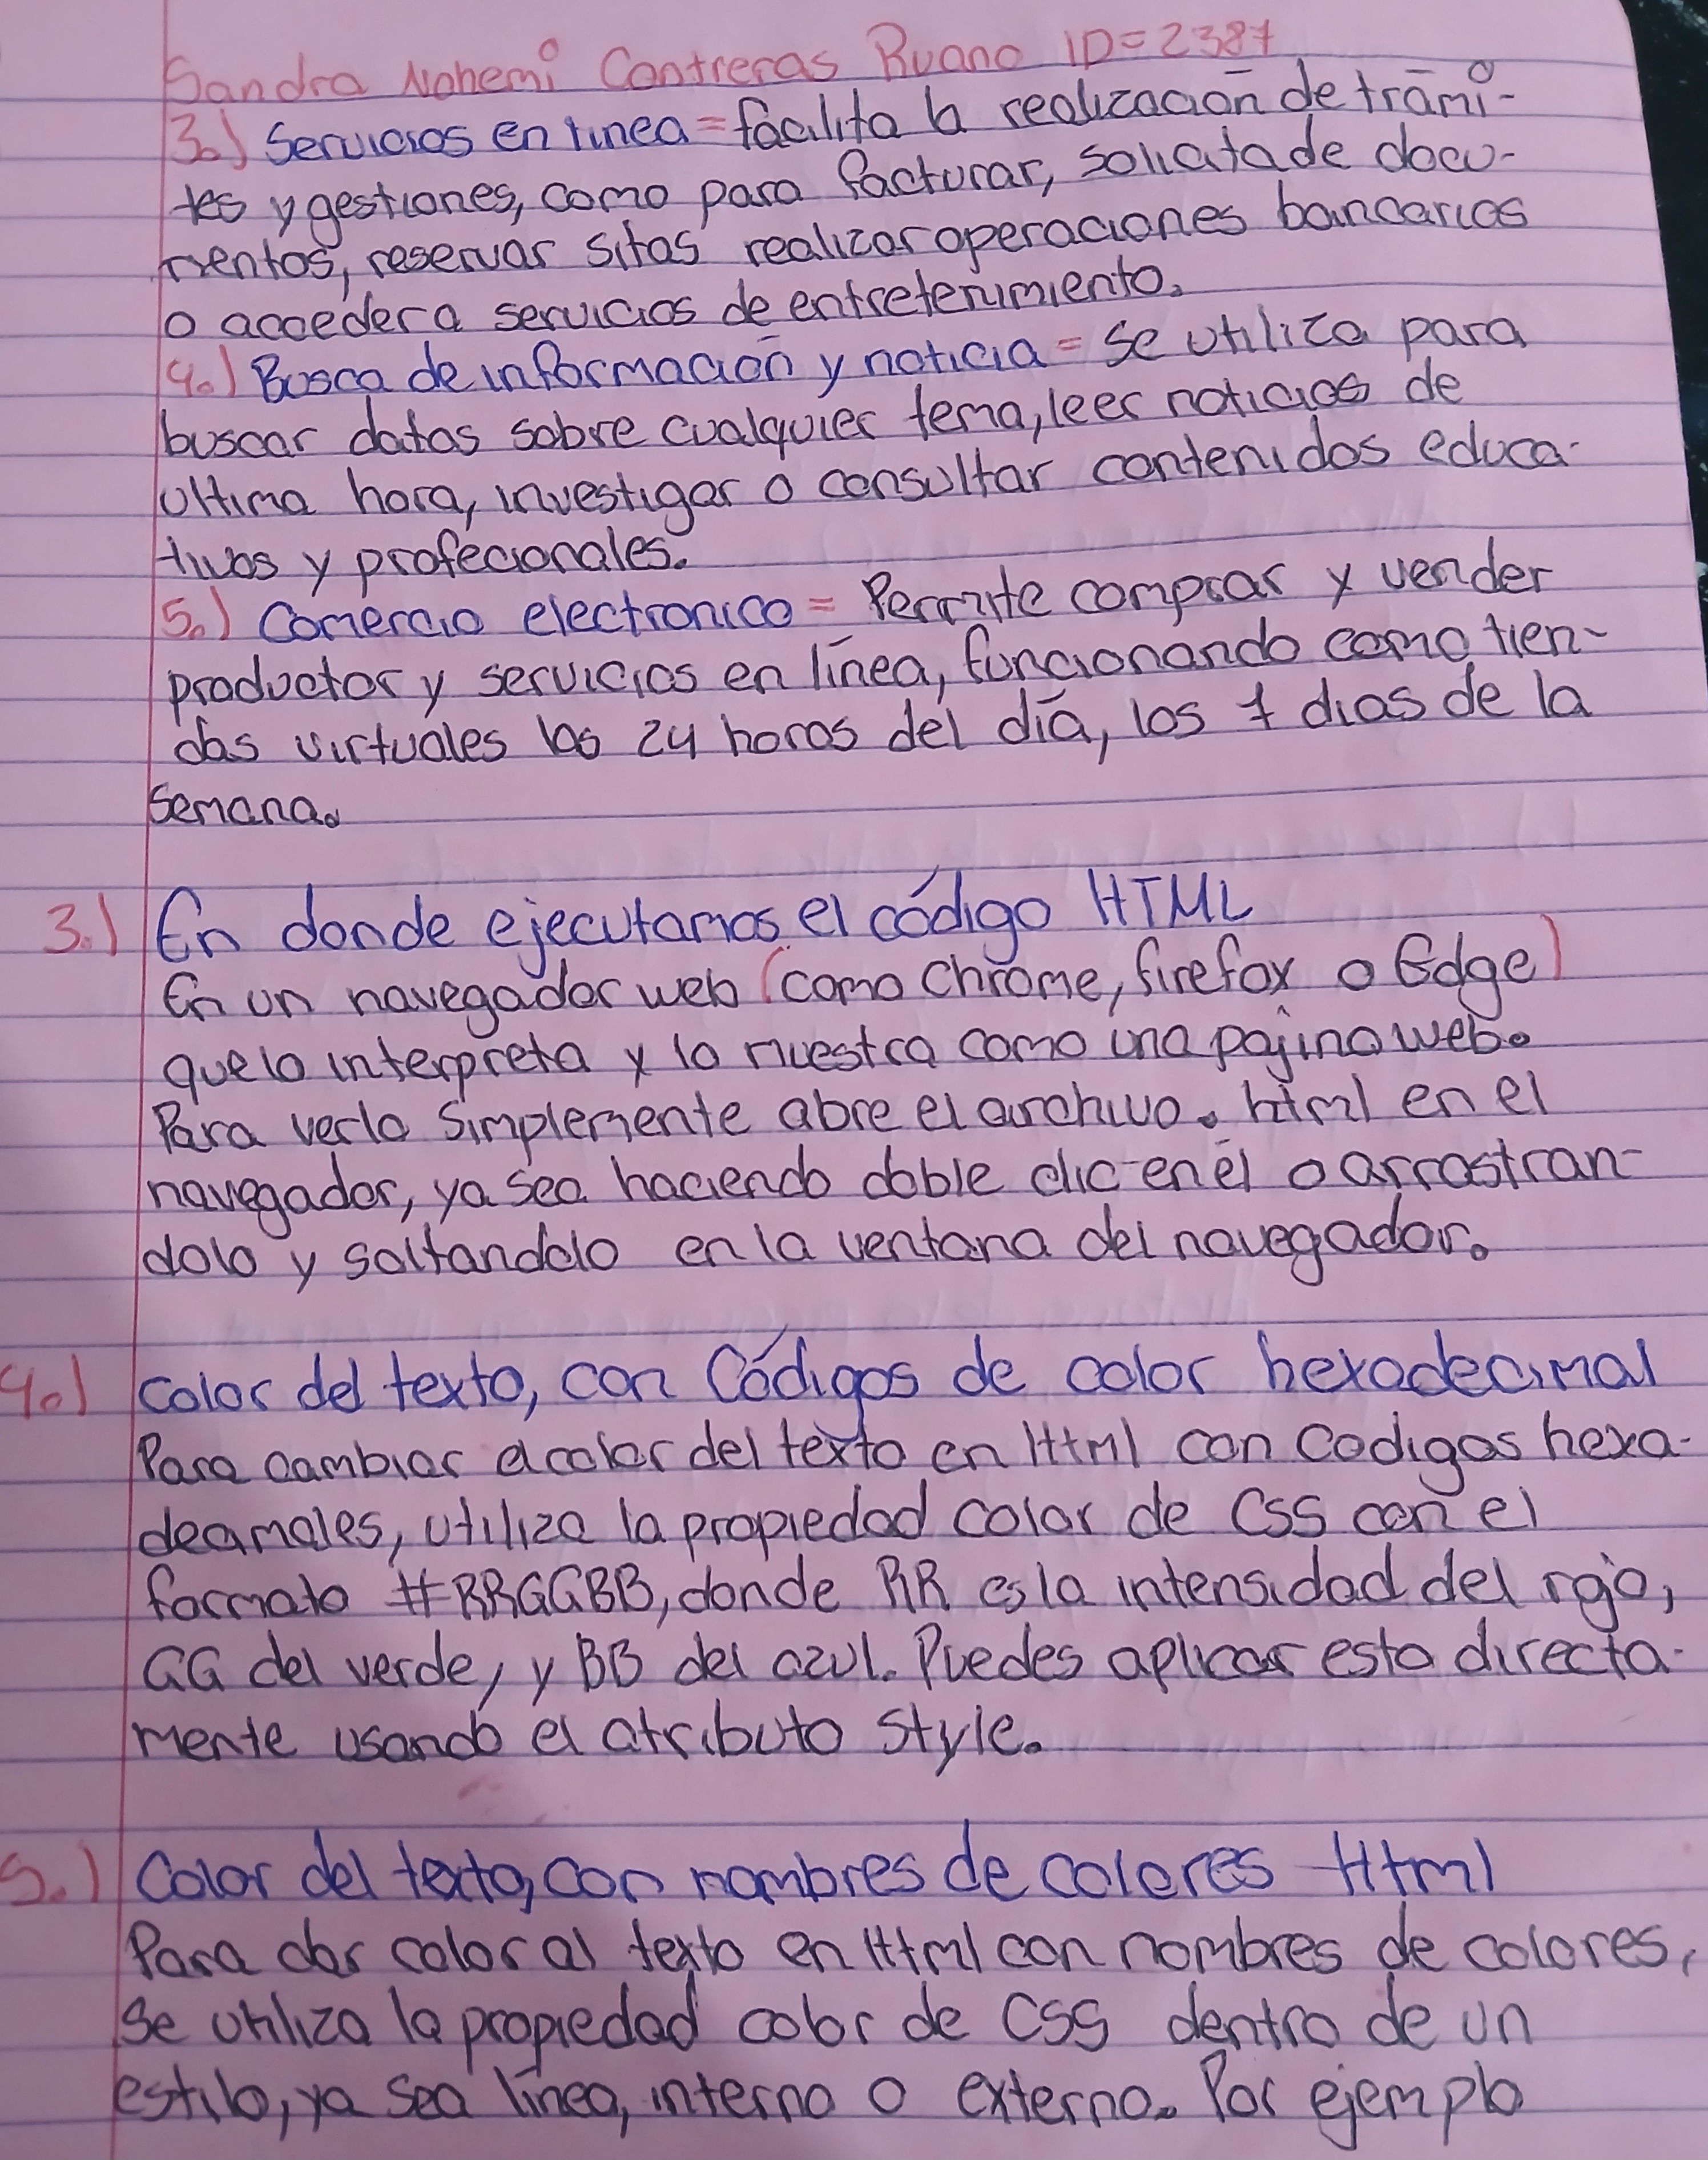 Sandra Nohemi Contreras Ruano ID=2387
3.) Servicios en linea = facilita la realización de trami-
tes y gestiones, como para facturar, solicitade docu-
mentos, reservar sitas realizar operaciones bancarios
o acceder a servicios de entretenimiento.
4.) Busca de información y noticia = se utiliza para
buscar datos sobre cualquier tema, leer noticias de
ultima hora, investigar o consultar contenidos educa-
tivos y profecionales.
5.) Comercio electronico = Permite comprar y vender
productor y servicios en línea, funcionando como tien-
das virtuales las 24 horas del día, los 7 dias de la
semana.
3.) En donde ejecutamos el código HTML
En un navegador web (como Chrome, firefox o Edge)
que lo interpreta y lo muestra como una pajina web.
Para verlo simplemente abre el archivo. html en el
navegador, ya sea haciendo doble clic en él o arrastran-
dolo y soltandolo en la ventana del navegador.
4.) Color del texto, con Códigos de color hexadecimal
Para cambiar el color del texto en Html con Codigos hexa-
decimales, utiliza la propiedad color de CSS con el
formato #RRGGBB, donde RR es la intensidad del rojo,
GG del verde, y BB del azul. Puedes aplicar esto directa-
mente usando el atributo style.
5.) Color del texto, con nombres de colores Html
Para dar color al texto en Html con nombres de colores,
se utiliza la propiedad color de CSS dentro de un
estilo, ya sea línea, interno o externo. Por ejemplo